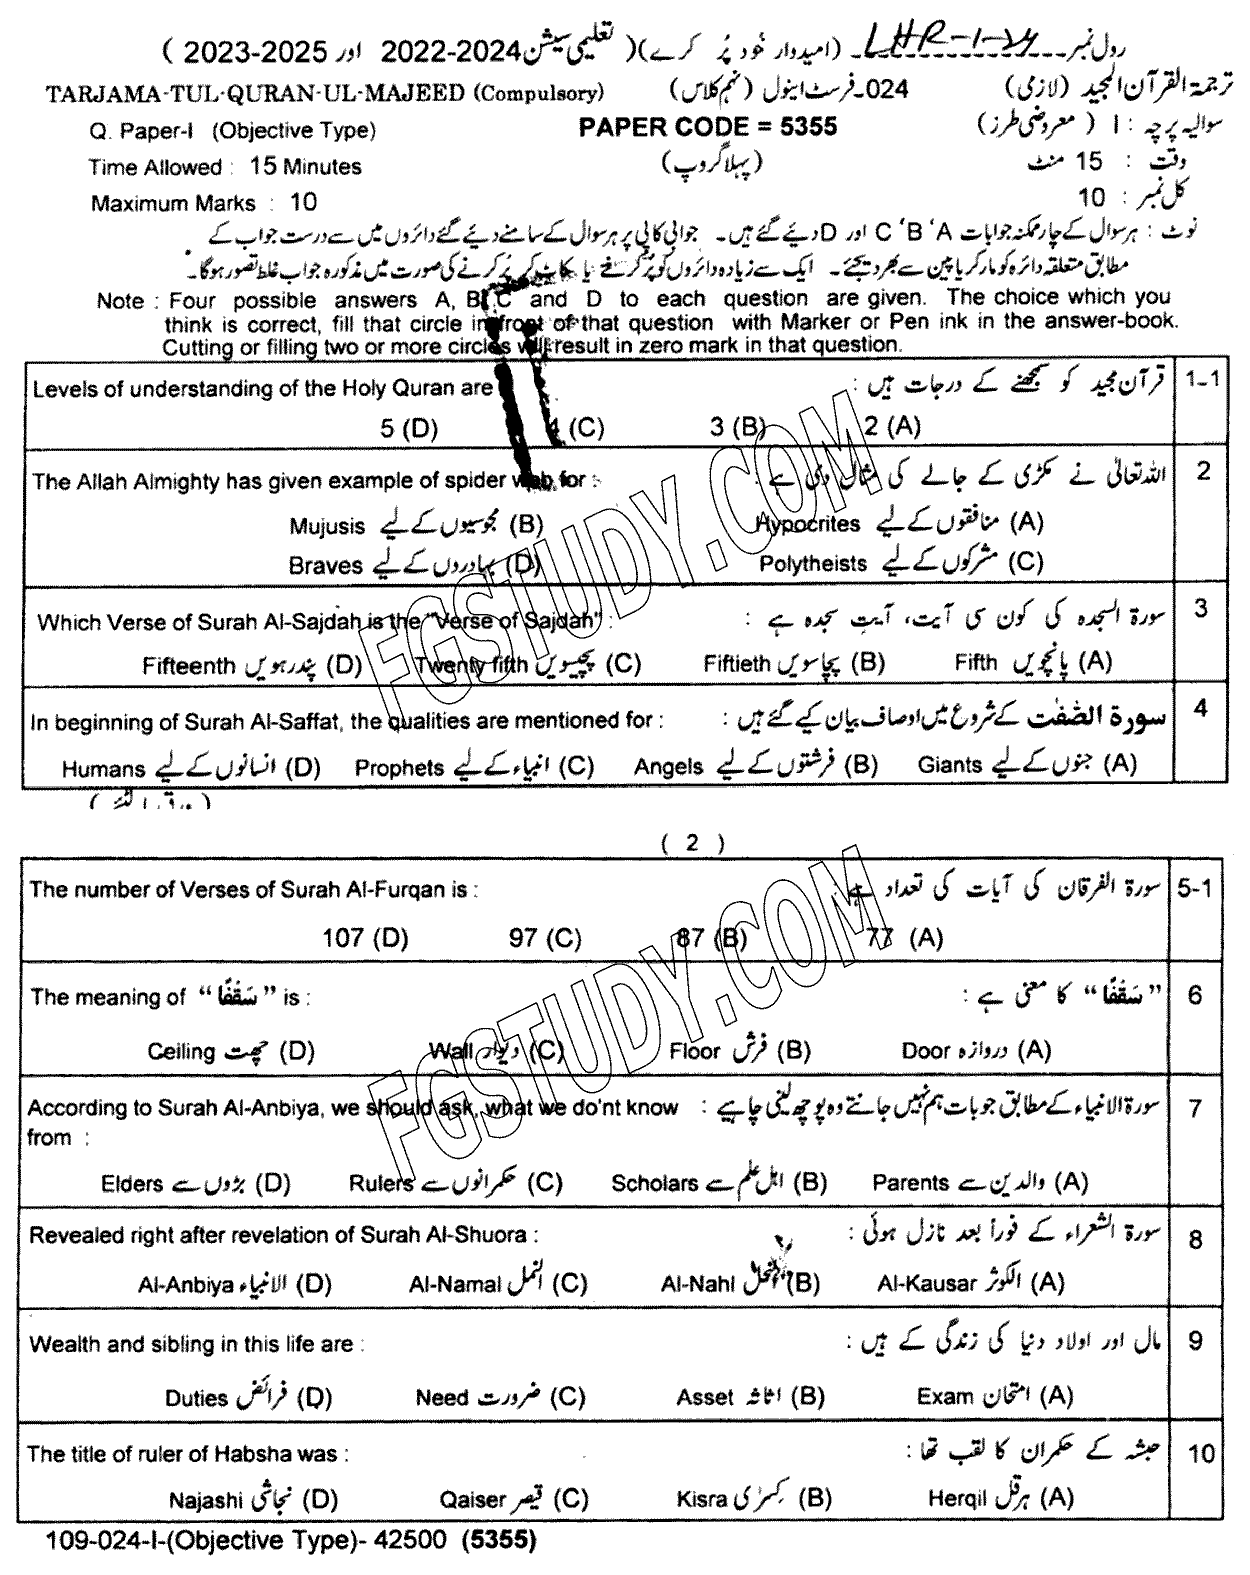 رول نمبر LHR-1-24 (امیدوار خود پُر کرے) (تعلیمی سیشن 2024-2022 اور 2025-2023)
TARJAMA-TUL-QURAN-UL-MAJEED (Compulsory) 024-فرسٹ اینول (نہم کلاس) ترجمۃ القرآن المجید (لازمی)
Q. Paper-I (Objective Type) PAPER CODE = 5355 سوالیہ پرچہ : I (معروضی طرز)
Time Allowed : 15 Minutes (پہلا گروپ) وقت : 15 منٹ
Maximum Marks : 10 کل نمبر : 10
نوٹ : ہر سوال کے چار ممکنہ جوابات A ' B ' C اور D دیئے گئے ہیں۔ جوابی کاپی پر ہر سوال کے سامنے دیئے گئے دائروں میں سے درست جواب کے
مطابق متعلقہ دائرہ کو مارکر یا پین سے بھر دیجئے۔ ایک سے زیادہ دائروں کو پُر کرنے یا کاٹ کر پُر کرنے کی صورت میں مذکورہ جواب غلط تصور ہوگا۔
Note : Four possible answers A, B, C and D to each question are given. The choice which you
think is correct, fill that circle in front of that question with Marker or Pen ink in the answer-book.
Cutting or filling two or more circles will result in zero mark in that question.
Levels of understanding of the Holy Quran are قرآن مجید کو سمجھنے کے درجات ہیں : 1-1
5 (D) 4 (C) 3 (B) 2 (A)
The Allah Almighty has given example of spider web for : اللہ تعالیٰ نے مکڑی کے جالے کی مثال دی ہے : 2
Mujusis مجوسیوں کے لیے (B) Hypocrites منافقوں کے لیے (A)
Braves بہادروں کے لیے (D) Polytheists مشرکوں کے لیے (C)
Which Verse of Surah Al-Sajdah is the "Verse of Sajdah" : سورۃ السجدہ کی کون سی آیت، آیتِ سجدہ ہے : 3
Fifteenth پندرہویں (D) Twenty fifth پچیسویں (C) Fiftieth پچاسویں (B) Fifth پانچویں (A)
In beginning of Surah Al-Saffat, the qualities are mentioned for : سورۃ الصّٰفّٰت کے شروع میں اوصاف بیان کیے گئے ہیں : 4
Humans انسانوں کے لیے (D) Prophets انبیاء کے لیے (C) Angels فرشتوں کے لیے (B) Giants جنوں کے لیے (A)
( 2 )
The number of Verses of Surah Al-Furqan is : سورۃ الفرقان کی آیات کی تعداد ہے : 5-1
107 (D) 97 (C) 87 (B) 77 (A)
The meaning of “ سَقْفًا ” is : “ سَقْفًا ” کا معنی ہے : 6
Ceiling چھت (D) Wall دیوار (C) Floor فرش (B) Door دروازہ (A)
According to Surah Al-Anbiya, we should ask, what we do'nt know سورۃ الانبیاء کے مطابق جو بات ہم نہیں جانتے وہ پوچھ لینی چاہیے : 7
from :
Elders بڑوں سے (D) Rulers حکمرانوں سے (C) Scholars اہل علم سے (B) Parents والدین سے (A)
Revealed right after revelation of Surah Al-Shuora : سورۃ الشعراء کے فوراً بعد نازل ہوئی : 8
Al-Anbiya الانبیاء (D) Al-Namal النمل (C) Al-Nahl النحل (B) Al-Kausar الکوثر (A)
Wealth and sibling in this life are : مال اور اولاد دنیا کی زندگی کے ہیں : 9
Duties فرائض (D) Need ضرورت (C) Asset اثاثہ (B) Exam امتحان (A)
The title of ruler of Habsha was : حبشہ کے حکمران کا لقب تھا : 10
Najashi نجاشی (D) Qaiser قیصر (C) Kisra کسرٰی (B) Herqil ہرقل (A)
109-024-I-(Objective Type)- 42500 (5355)
FGSTUDY.COM
FGSTUDY.COM